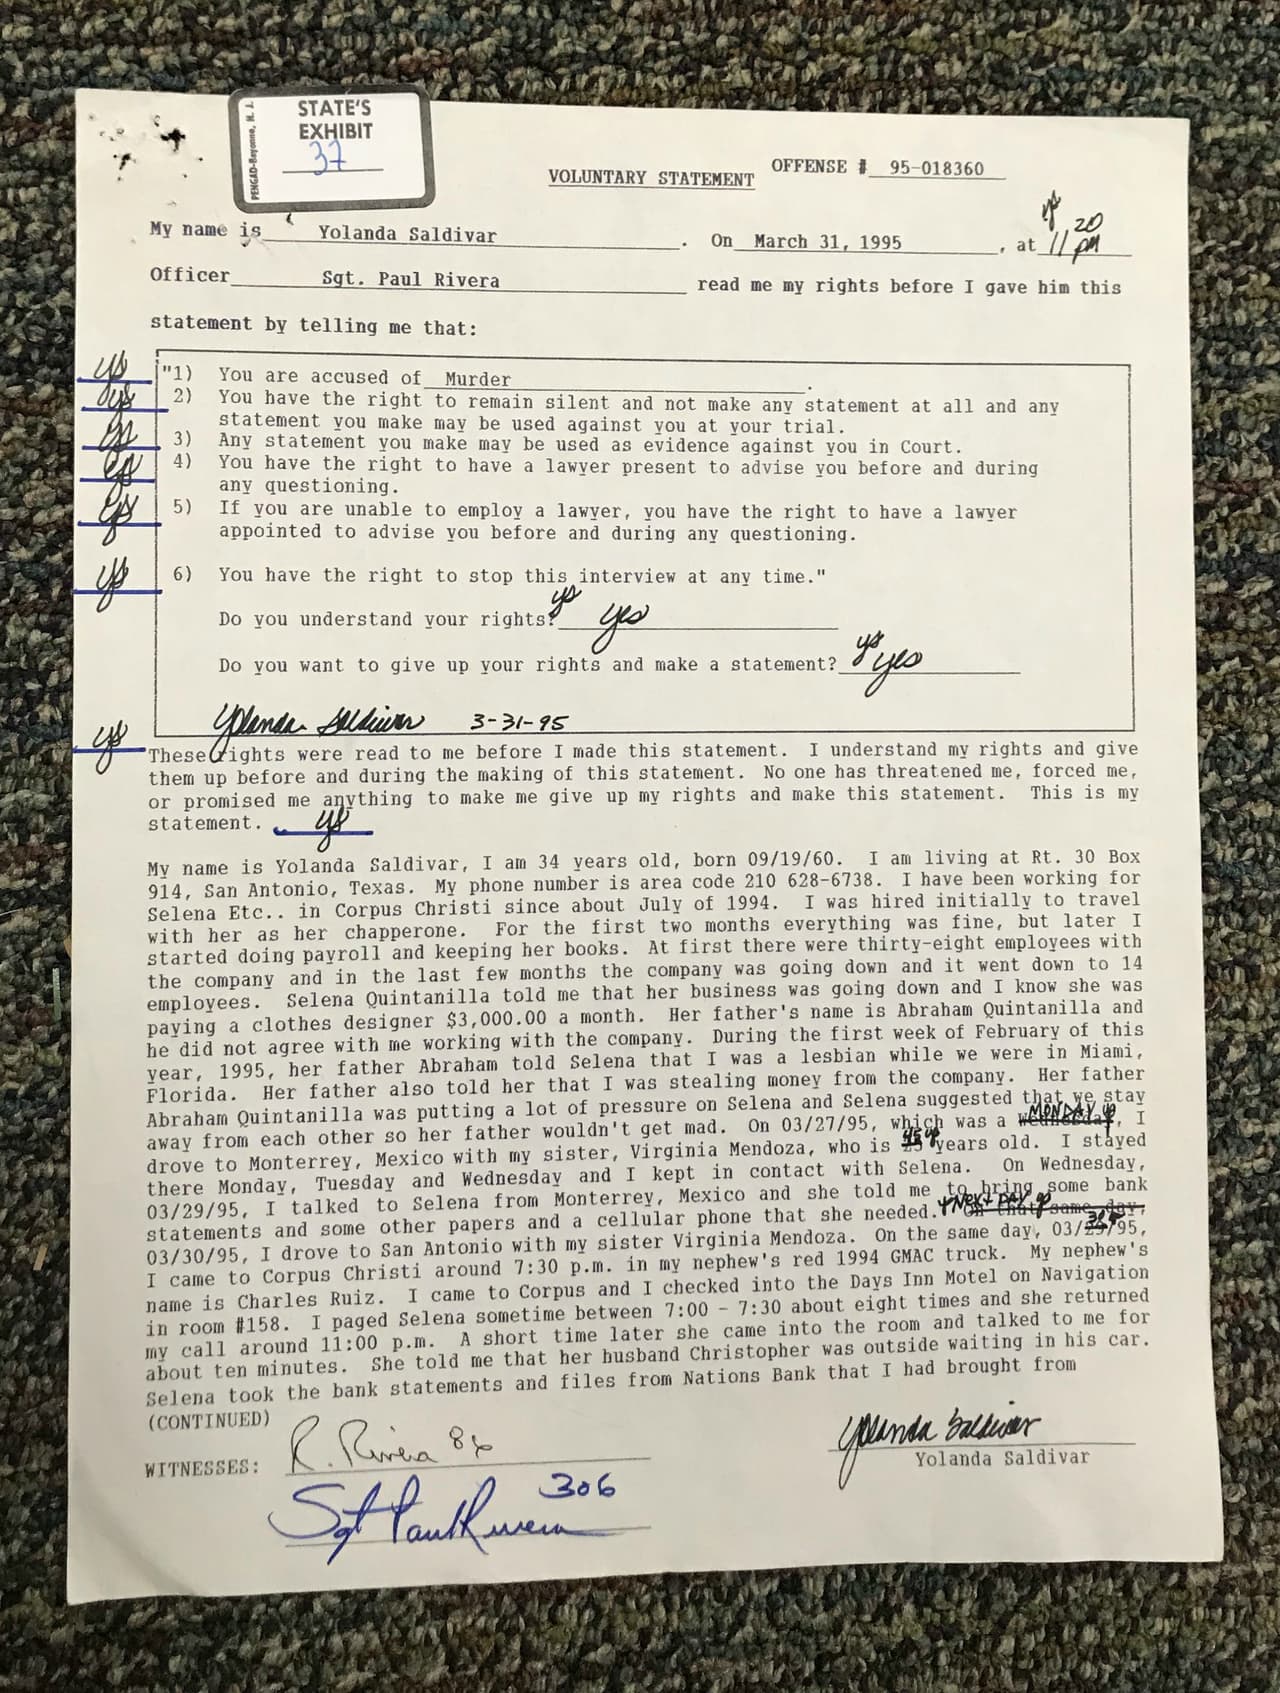 STATE'S
EXHIBIT
37
PENGAD-Bayonne, N. J.
VOLUNTARY STATEMENT OFFENSE # 95-018360
ys
My name is Yolanda Saldivar . On March 31, 1995 , at 11 20 pm
Officer Sgt. Paul Rivera read me my rights before I gave him this
statement by telling me that:
ys "1) You are accused of Murder .
ys 2) You have the right to remain silent and not make any statement at all and any
statement you make may be used against you at your trial.
ys 3) Any statement you make may be used as evidence against you in Court.
ys 4) You have the right to have a lawyer present to advise you before and during
any questioning.
ys 5) If you are unable to employ a lawyer, you have the right to have a lawyer
appointed to advise you before and during any questioning.
ys 6) You have the right to stop this interview at any time."
Do you understand your rights? ys yes
Do you want to give up your rights and make a statement? ys yes
Yolanda Saldivar 3-31-95
ys These rights were read to me before I made this statement. I understand my rights and give
them up before and during the making of this statement. No one has threatened me, forced me,
or promised me anything to make me give up my rights and make this statement. This is my
statement. ys
My name is Yolanda Saldivar, I am 34 years old, born 09/19/60. I am living at Rt. 30 Box
914, San Antonio, Texas. My phone number is area code 210 628-6738. I have been working for
Selena Etc.. in Corpus Christi since about July of 1994. I was hired initially to travel
with her as her chapperone. For the first two months everything was fine, but later I
started doing payroll and keeping her books. At first there were thirty-eight employees with
the company and in the last few months the company was going down and it went down to 14
employees. Selena Quintanilla told me that her business was going down and I know she was
paying a clothes designer $3,000.00 a month. Her father's name is Abraham Quintanilla and
he did not agree with me working with the company. During the first week of February of this
year, 1995, her father Abraham told Selena that I was a lesbian while we were in Miami,
Florida. Her father also told her that I was stealing money from the company. Her father
Abraham Quintanilla was putting a lot of pressure on Selena and Selena suggested that we stay
away from each other so her father wouldn't get mad. On 03/27/95, which was a Wednesday MONDAY ys, I
drove to Monterrey, Mexico with my sister, Virginia Mendoza, who is 45 ys years old. I stayed
there Monday, Tuesday and Wednesday and I kept in contact with Selena. On Wednesday,
03/29/95, I talked to Selena from Monterrey, Mexico and she told me to bring some bank
statements and some other papers and a cellular phone that she needed. Next DAY ys On that same day,
03/30/95, I drove to San Antonio with my sister Virginia Mendoza. On the same day, 03/30/95,
I came to Corpus Christi around 7:30 p.m. in my nephew's red 1994 GMAC truck. My nephew's
name is Charles Ruiz. I came to Corpus and I checked into the Days Inn Motel on Navigation
in room #158. I paged Selena sometime between 7:00 - 7:30 about eight times and she returned
my call around 11:00 p.m. A short time later she came into the room and talked to me for
about ten minutes. She told me that her husband Christopher was outside waiting in his car.
Selena took the bank statements and files from Nations Bank that I had brought from
(CONTINUED)
WITNESSES: R. Rivera Yolanda Saldivar
Yolanda Saldivar
Sgt Paul Rivera 306